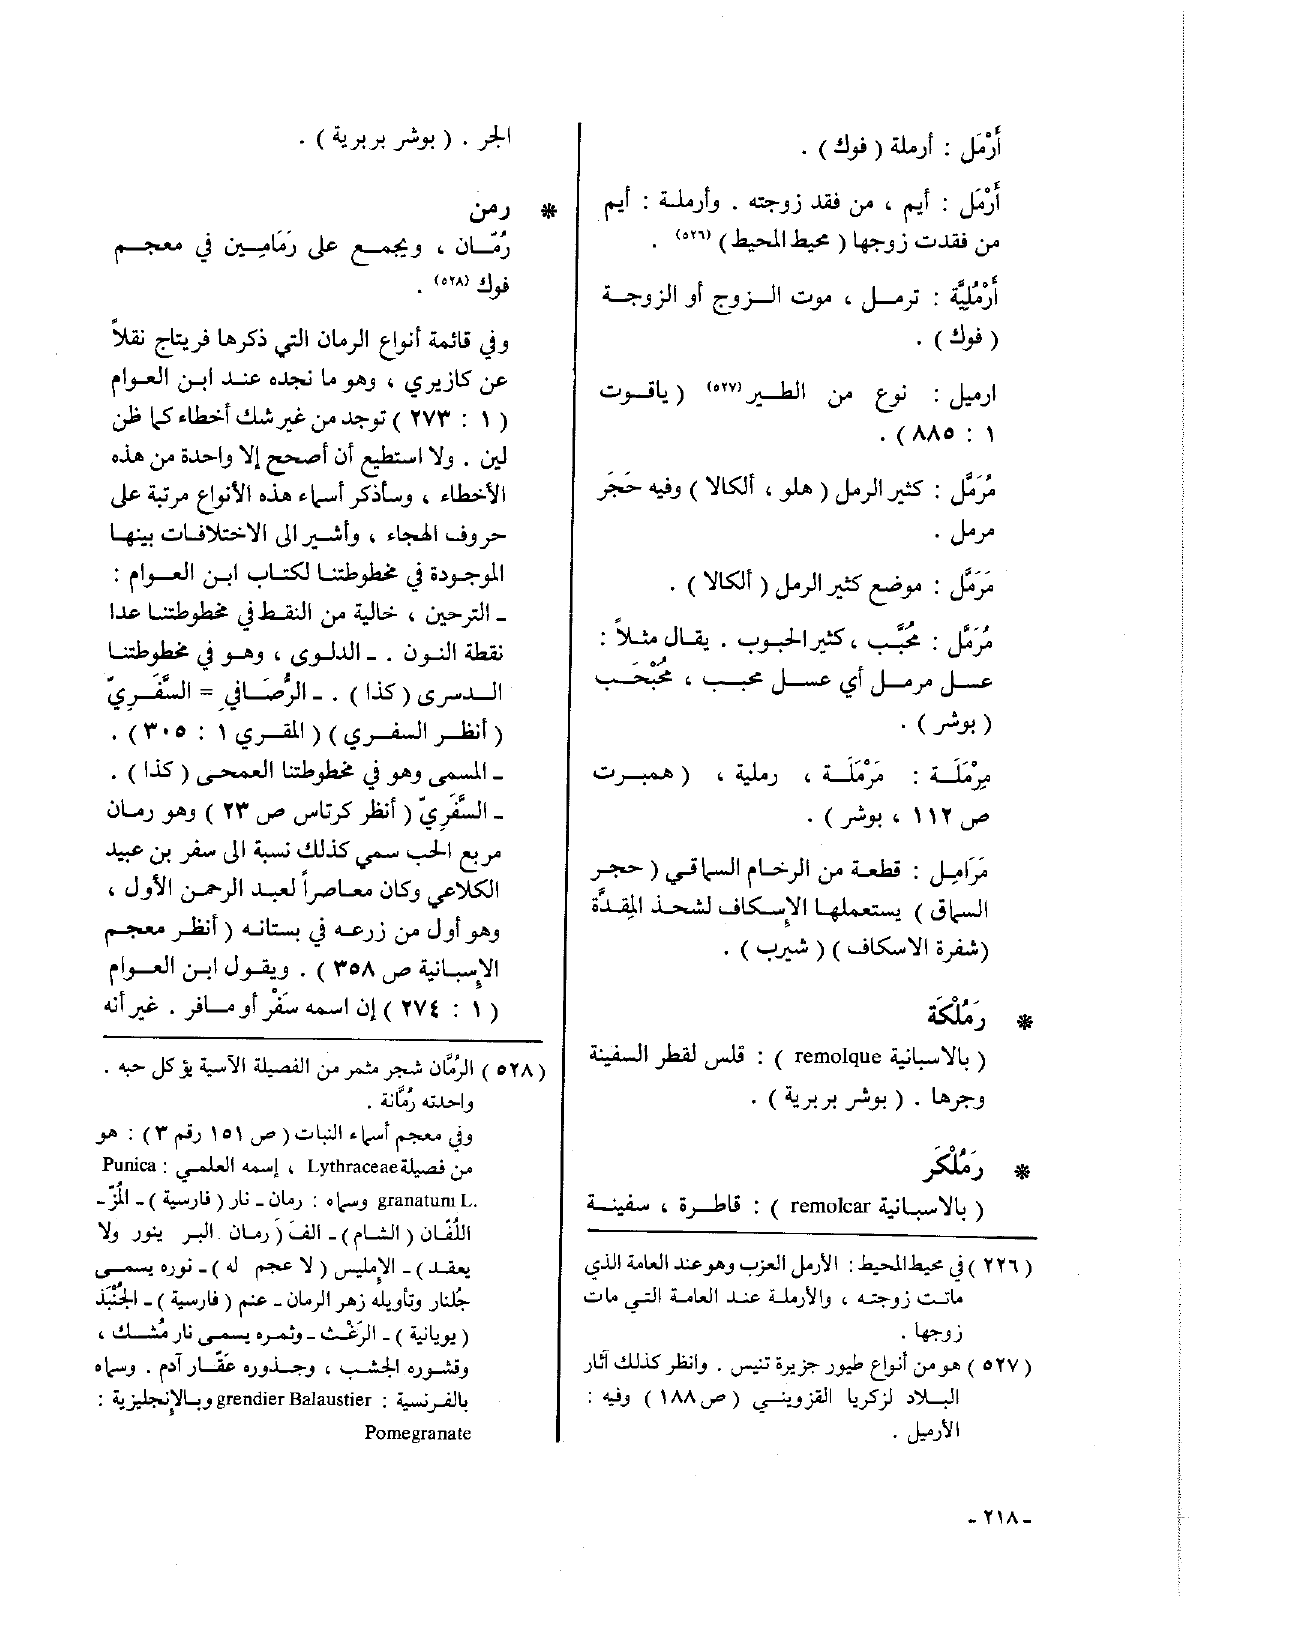 أَرْمَل : أرملة ( فوك ) .
أَرْمَل : أيم ، من فقد زوجته . وأرملة : أيم
من فقدت زوجها ( محيط المحيط ) (٥٢٦) .
أَرْمَلِيَّة : ترمل ، موت الزوج أو الزوجة
( فوك ) .
ارميل : نوع من الطير (٥٢٧) ( ياقوت
١ : ٨٨٥ ) .
مُرَمَّل : كثير الرمل ( هلو ، ألكالا ) وفيه حَجَر
مرمل .
مَرَمَّل : موضع كثير الرمل ( ألكالا ) .
مُرَمَّل : مُحَبَّب ، كثير الحبوب . يقال مثلاً :
عسل مرمل أي عسل محبب ، مُحَبْحَب
( بوشر ) .
مِرْمَلَة : مَرْمَلَة ، رملية ، ( همبرت
ص ١١٢ ، بوشر ) .
مَرَامِيل : قطعة من الرخام السماقي ( حجر
السماق ) يستعملها الإسكاف لشحذ المِقَدَّة
(شفرة الاسكاف ) ( شيرب ) .
* رَمُلْكَة
( بالاسبانية remolque ) : قلس لقطر السفينة
وجرها . ( بوشر بربرية ) .
* رَمُلْكَر
( بالاسبانية remolcar ) : قاطرة ، سفينة
( ٢٢٦ ) في محيط المحيط : الأرمل العزب وهو عند العامة الذي
ماتت زوجته ، والأرملة عند العامة التي مات
زوجها .
( ٥٢٧ ) هو من أنواع طيور جزيرة تنيس . وانظر كذلك آثار
البلاد لزكريا القزويني ( ص ١٨٨ ) وفيه :
الأرميل .
الجر . ( بوشر بربرية ) .
* رمن
رُمَّان ، ويجمع على رَمَامِين في معجم
فوك (٥٢٨) .
وفي قائمة أنواع الرمان التي ذكرها فريتاج نقلاً
عن كازيري ، وهو ما نجده عند ابن العوام
( ١ : ٢٧٣ ) توجد من غير شك أخطاء كما ظن
لين . ولا استطيع أن أصحح إلا واحدة من هذه
الأخطاء ، وسأذكر أسماء هذه الأنواع مرتبة على
حروف الهجاء ، وأشير الى الاختلافات بينها
الموجودة في مخطوطتنا لكتاب ابن العوام :
ـ الترحين ، خالية من النقط في مخطوطتنا عدا
نقطة النون . ـ الدلوى ، وهو في مخطوطتنا
الدسرى ( كذا ) . ـ الرُصَافي = السَّفَرِيّ
( أنظر السفري ) ( المقري ١ : ٣٠٥ ) .
ـ المسمى وهو في مخطوطتنا العمحى ( كذا ) .
ـ السَّفَرِيّ ( أنظر كرتاس ص ٢٣ ) وهو رمان
مربع الحب سمي كذلك نسبة الى سفر بن عبيد
الكلاعي وكان معاصراً لعبد الرحمن الأول ،
وهو أول من زرعه في بستانه ( أنظر معجم
الإسبانية ص ٣٥٨ ) . ويقول ابن العوام
( ١ : ٢٧٤ ) إن اسمه سَفْر أو مسافر . غير أنه
( ٥٢٨ ) الرُمَّان شجر مثمر من الفصيلة الآسية يؤكل حبه .
واحدته رُمَّانة .
وفي معجم أسماء النبات ( ص ١٥١ رقم ٣ ) : هو
من فصيلة Lythraceae ، إسمه العلمي : Punica
granatum L. وسماه : رمان ـ نار ( فارسية ) ـ المُزّ ـ
اللُفّان ( الشام ) ـ الف ( رمان البر ينور ولا
يعقد ) ـ الإمليس ( لا عجم له ) ـ نوره يسمى
جُلنار وتأويله زهر الرمان ـ عنم ( فارسية ) ـ الجُنْبُذ
( يونانية ) ـ الرَغْث ـ وثمره يسمى نار مُشك ،
وقشوره الخشب ، وجذوره عَقّار آدم . وسماه
بالفرنسية : grendier Balaustier وبالإنجليزية :
Pomegranate
ـ ٢١٨ ـ